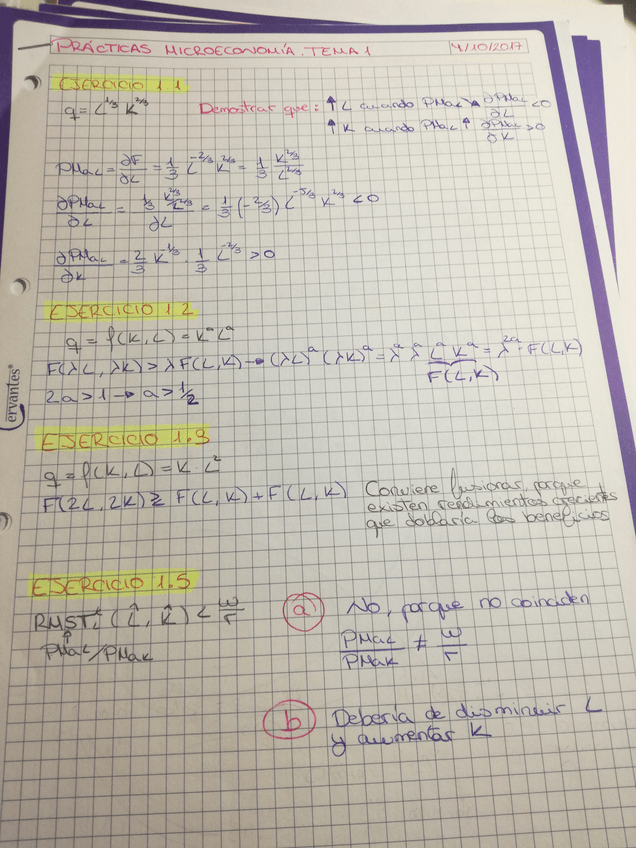 PRÁCTICAS MICROECONOMÍA. TEMA 1 4/10/2017
EJERCICIO 1.1
q = L^1/3 K^2/3 Demostrar que: ↑ L cuando PMaL ↘ ∂PMaL/∂L < 0
↑ K cuando PMaL ↑ ∂PMaL/∂K > 0
PMaL = ∂F/∂L = 1/3 L^-2/3 K^2/3 = 1/3 K^2/3/L^2/3
∂PMaL/∂L = 1/3 K^2/3/L^2/3 / ∂L = 1/3 (-2/3) L^-5/3 K^2/3 < 0
∂PMaL/∂K = 2/3 K^-1/3 · 1/3 L^-2/3 > 0
EJERCICIO 1.2
q = f(K, L) = K^a L^a
F(λL, λK) > λF(L, K) → (λL)^a (λK)^a = λ^a λ^a L^a K^a = λ^2a · F(L, K)
F(L, K)
2a > 1 → a > 1/2
EJERCICIO 1.3
q = f(K, L) = K · L^2
F(2L, 2K) ≥ F(L, K) + F(L, K) Conviene fusionar, porque
existen rendimientos crecientes
que doblaría los beneficios
EJERCICIO 1.5
RMST (L̂, K̂) < w/r
↑
PMaL/PMaK
a No, porque no coinciden
PMaL/PMaK ≠ w/r
b Debería de disminuir L
y aumentar K
ervantes®